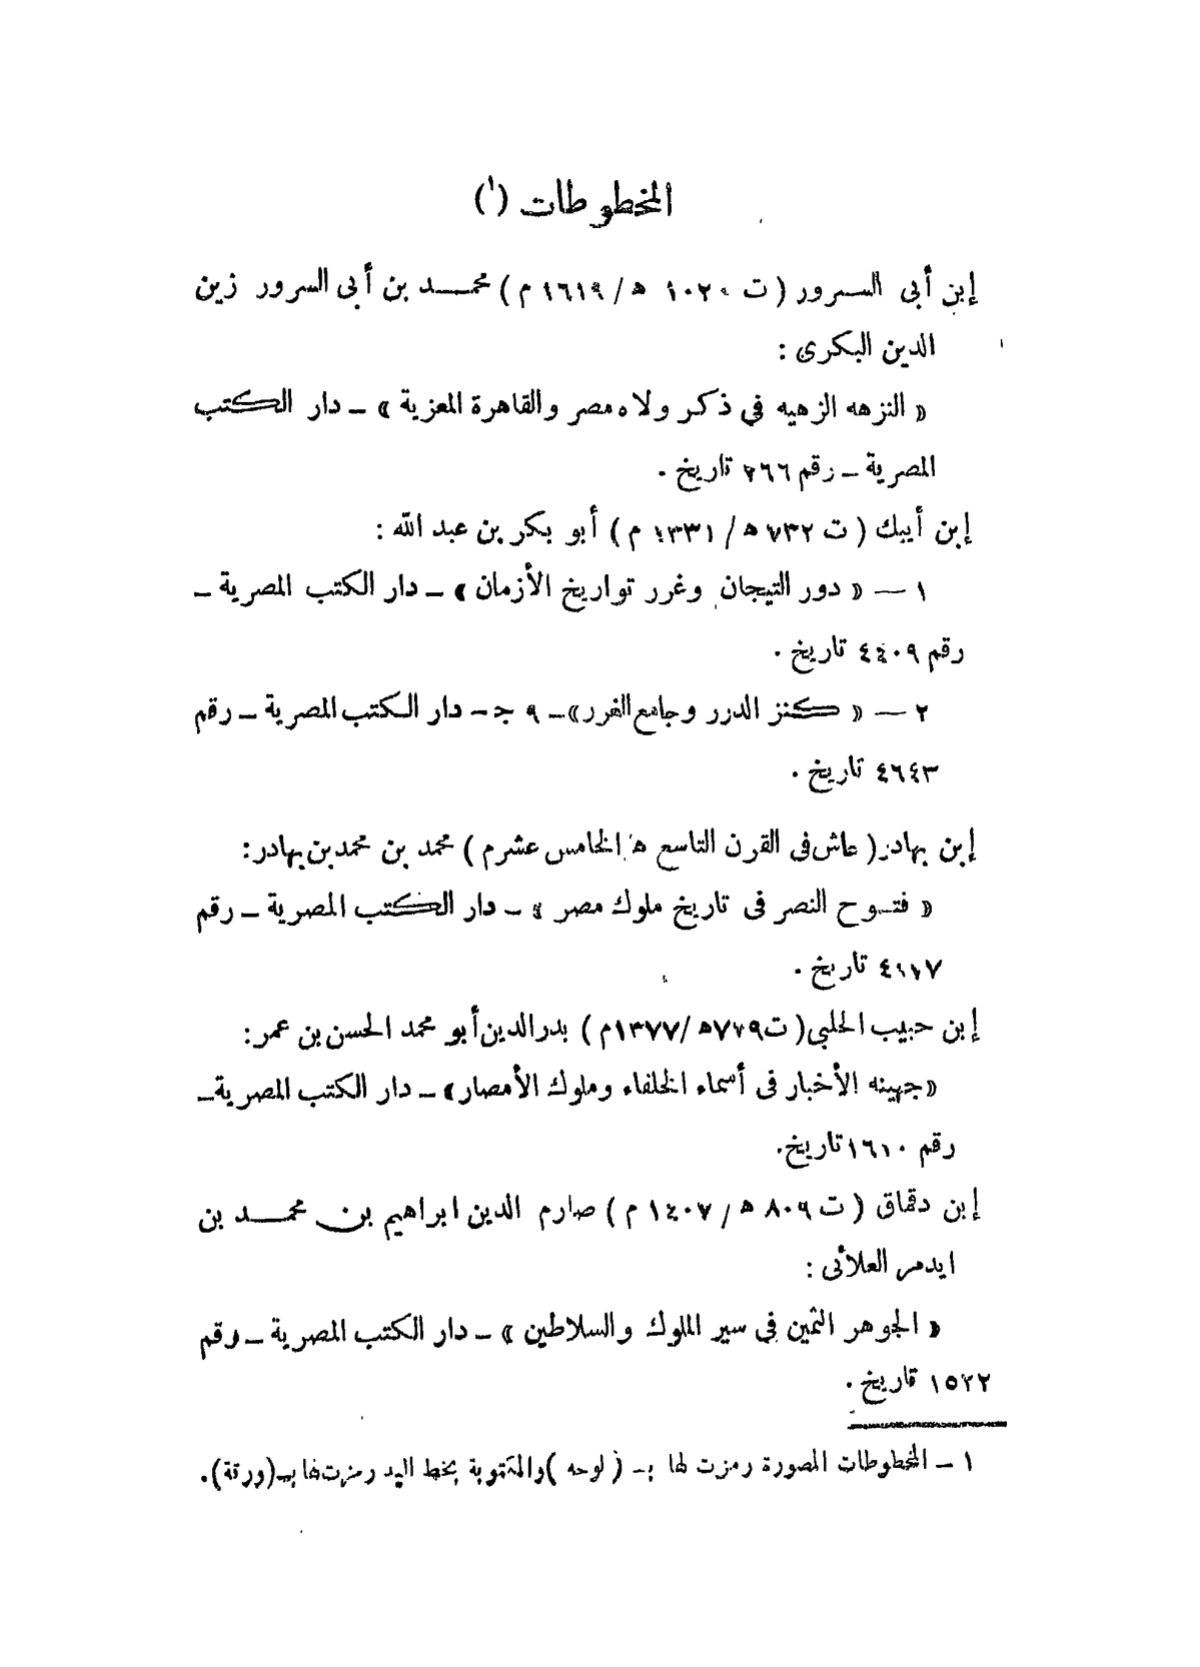 المخطوطات (١)
إبن أبى السرور ( ت ١٠٢٠ ه / ١٦١٩ م ) محمد بن أبى السرور زين
الدين البكرى :
« النزهه الزهيه في ذكر ولاه مصر والقاهرة المعزية » ــ دار الكتب
المصرية ــ رقم ٢٦٦ تاريخ .
إبن أيبك ( ت ٧٣٢ ه / ١٣٣١ م ) أبو بكر بن عبد الله :
١ — « دور التيجان وغرر تواريخ الأزمان » ــ دار الكتب المصرية ــ
رقم ٤٤٠٩ تاريخ .
٢ — « كنز الدرر وجامع الغرر» ــ ٩ جـ ــ دار الكتب المصرية ــ رقم
٤٦٤٣ تاريخ .
إبن بهادر ( عاش فى القرن التاسع ه الخامس عشر م ) محمد بن محمد بن بهادر:
« فتوح النصر فى تاريخ ملوك مصر » ــ دار الكتب المصرية ــ رقم
تاريخ .
إبن حبيب الحلبى ( ت ٧٧٩ه /١٣٧٧م ) بدر الدين أبو محمد الحسن بن عمر:
«جهينه الأخبار فى أسماء الخلفاء وملوك الأمصار» ــ دار الكتب المصرية ــ
رقم ١٦١٠ تاريخ.
إبن دقماق ( ت ٨٠٩ ه / ١٤٠٧ م ) صارم الدين ابراهيم بن محمد بن
ايدمر العلائى :
« الجوهر الثمين في سير الملوك والسلاطين » ــ دار الكتب المصرية ــ رقم
١٥٢٢ تاريخ .
١ ــ المخطوطات المصورة رمزت لها بـ ( لوحه ) والمكتوبة بخط اليد رمزت لها بـ (ورقة).